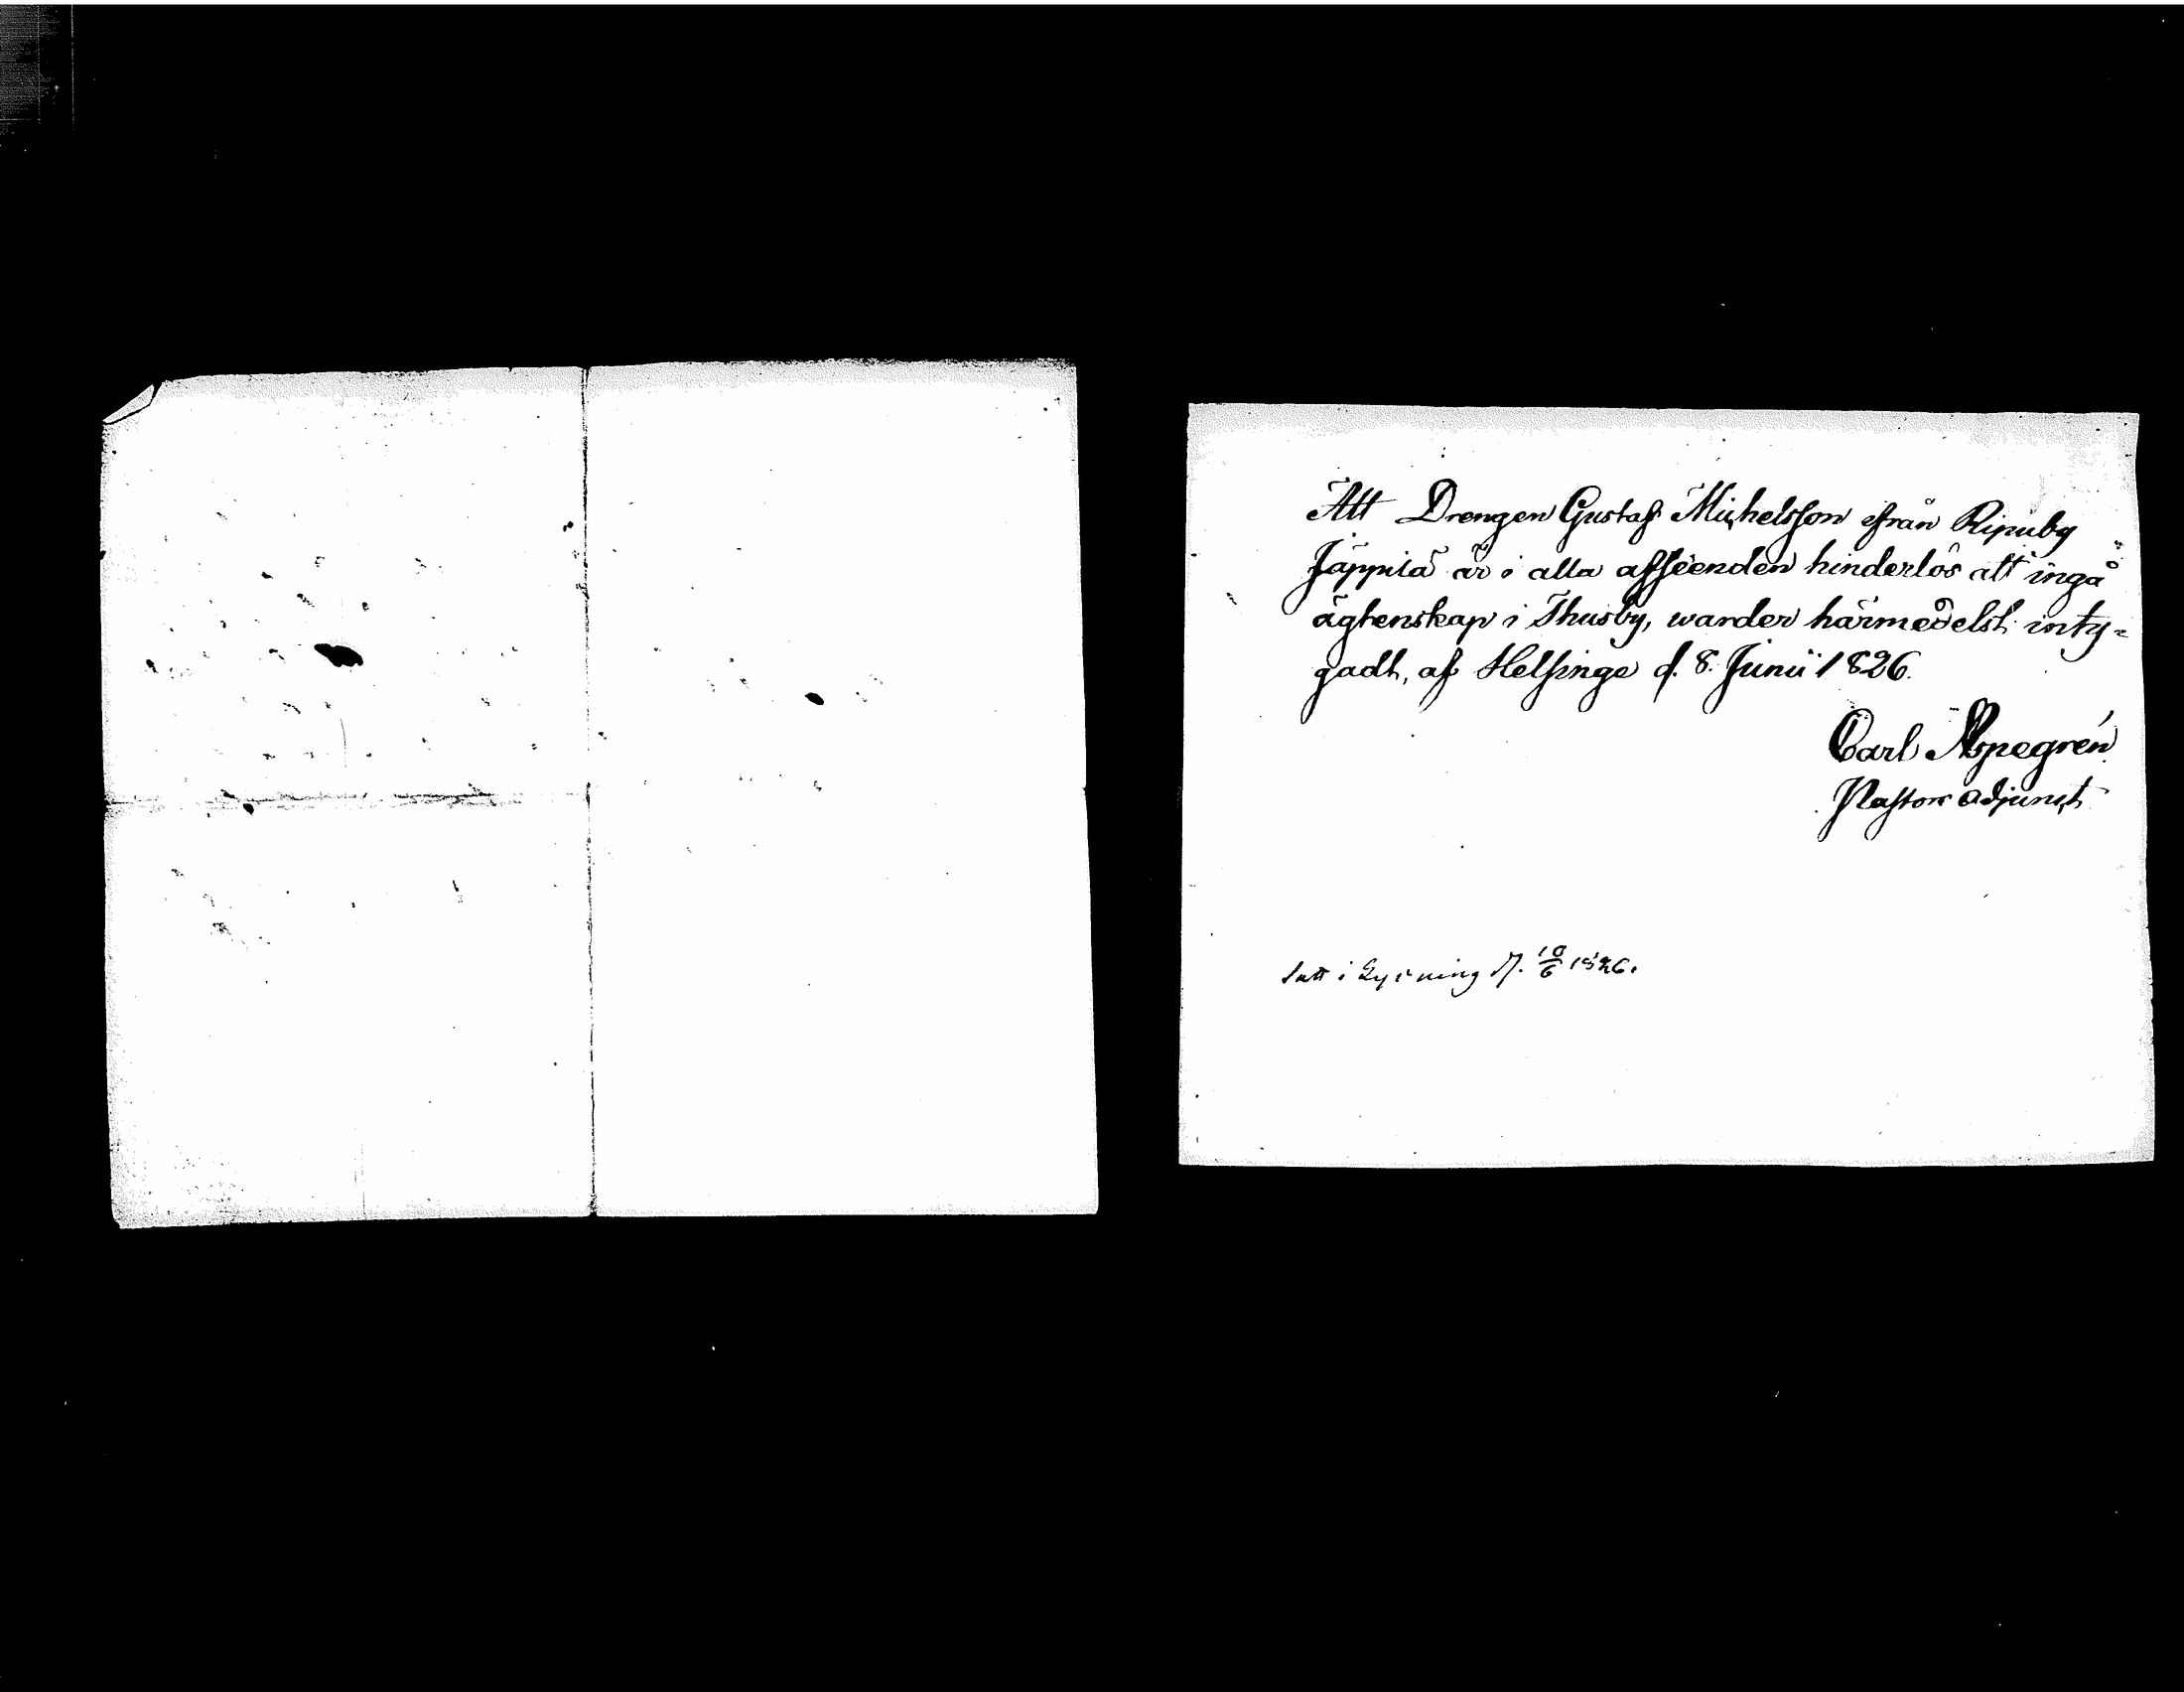 Att Drengen Gustaf Michelsson ifrån Ripuby
Jäppilä är i alla afseenden hinderlös att ingå
ägtenskap i Thusby, warder härmedelst inty-
gadt, af Helsinge d. 8. Junii 1826.
Carl Aspegrén
Pastors adjunct
tatt i Lysning d. 10/6 1826.